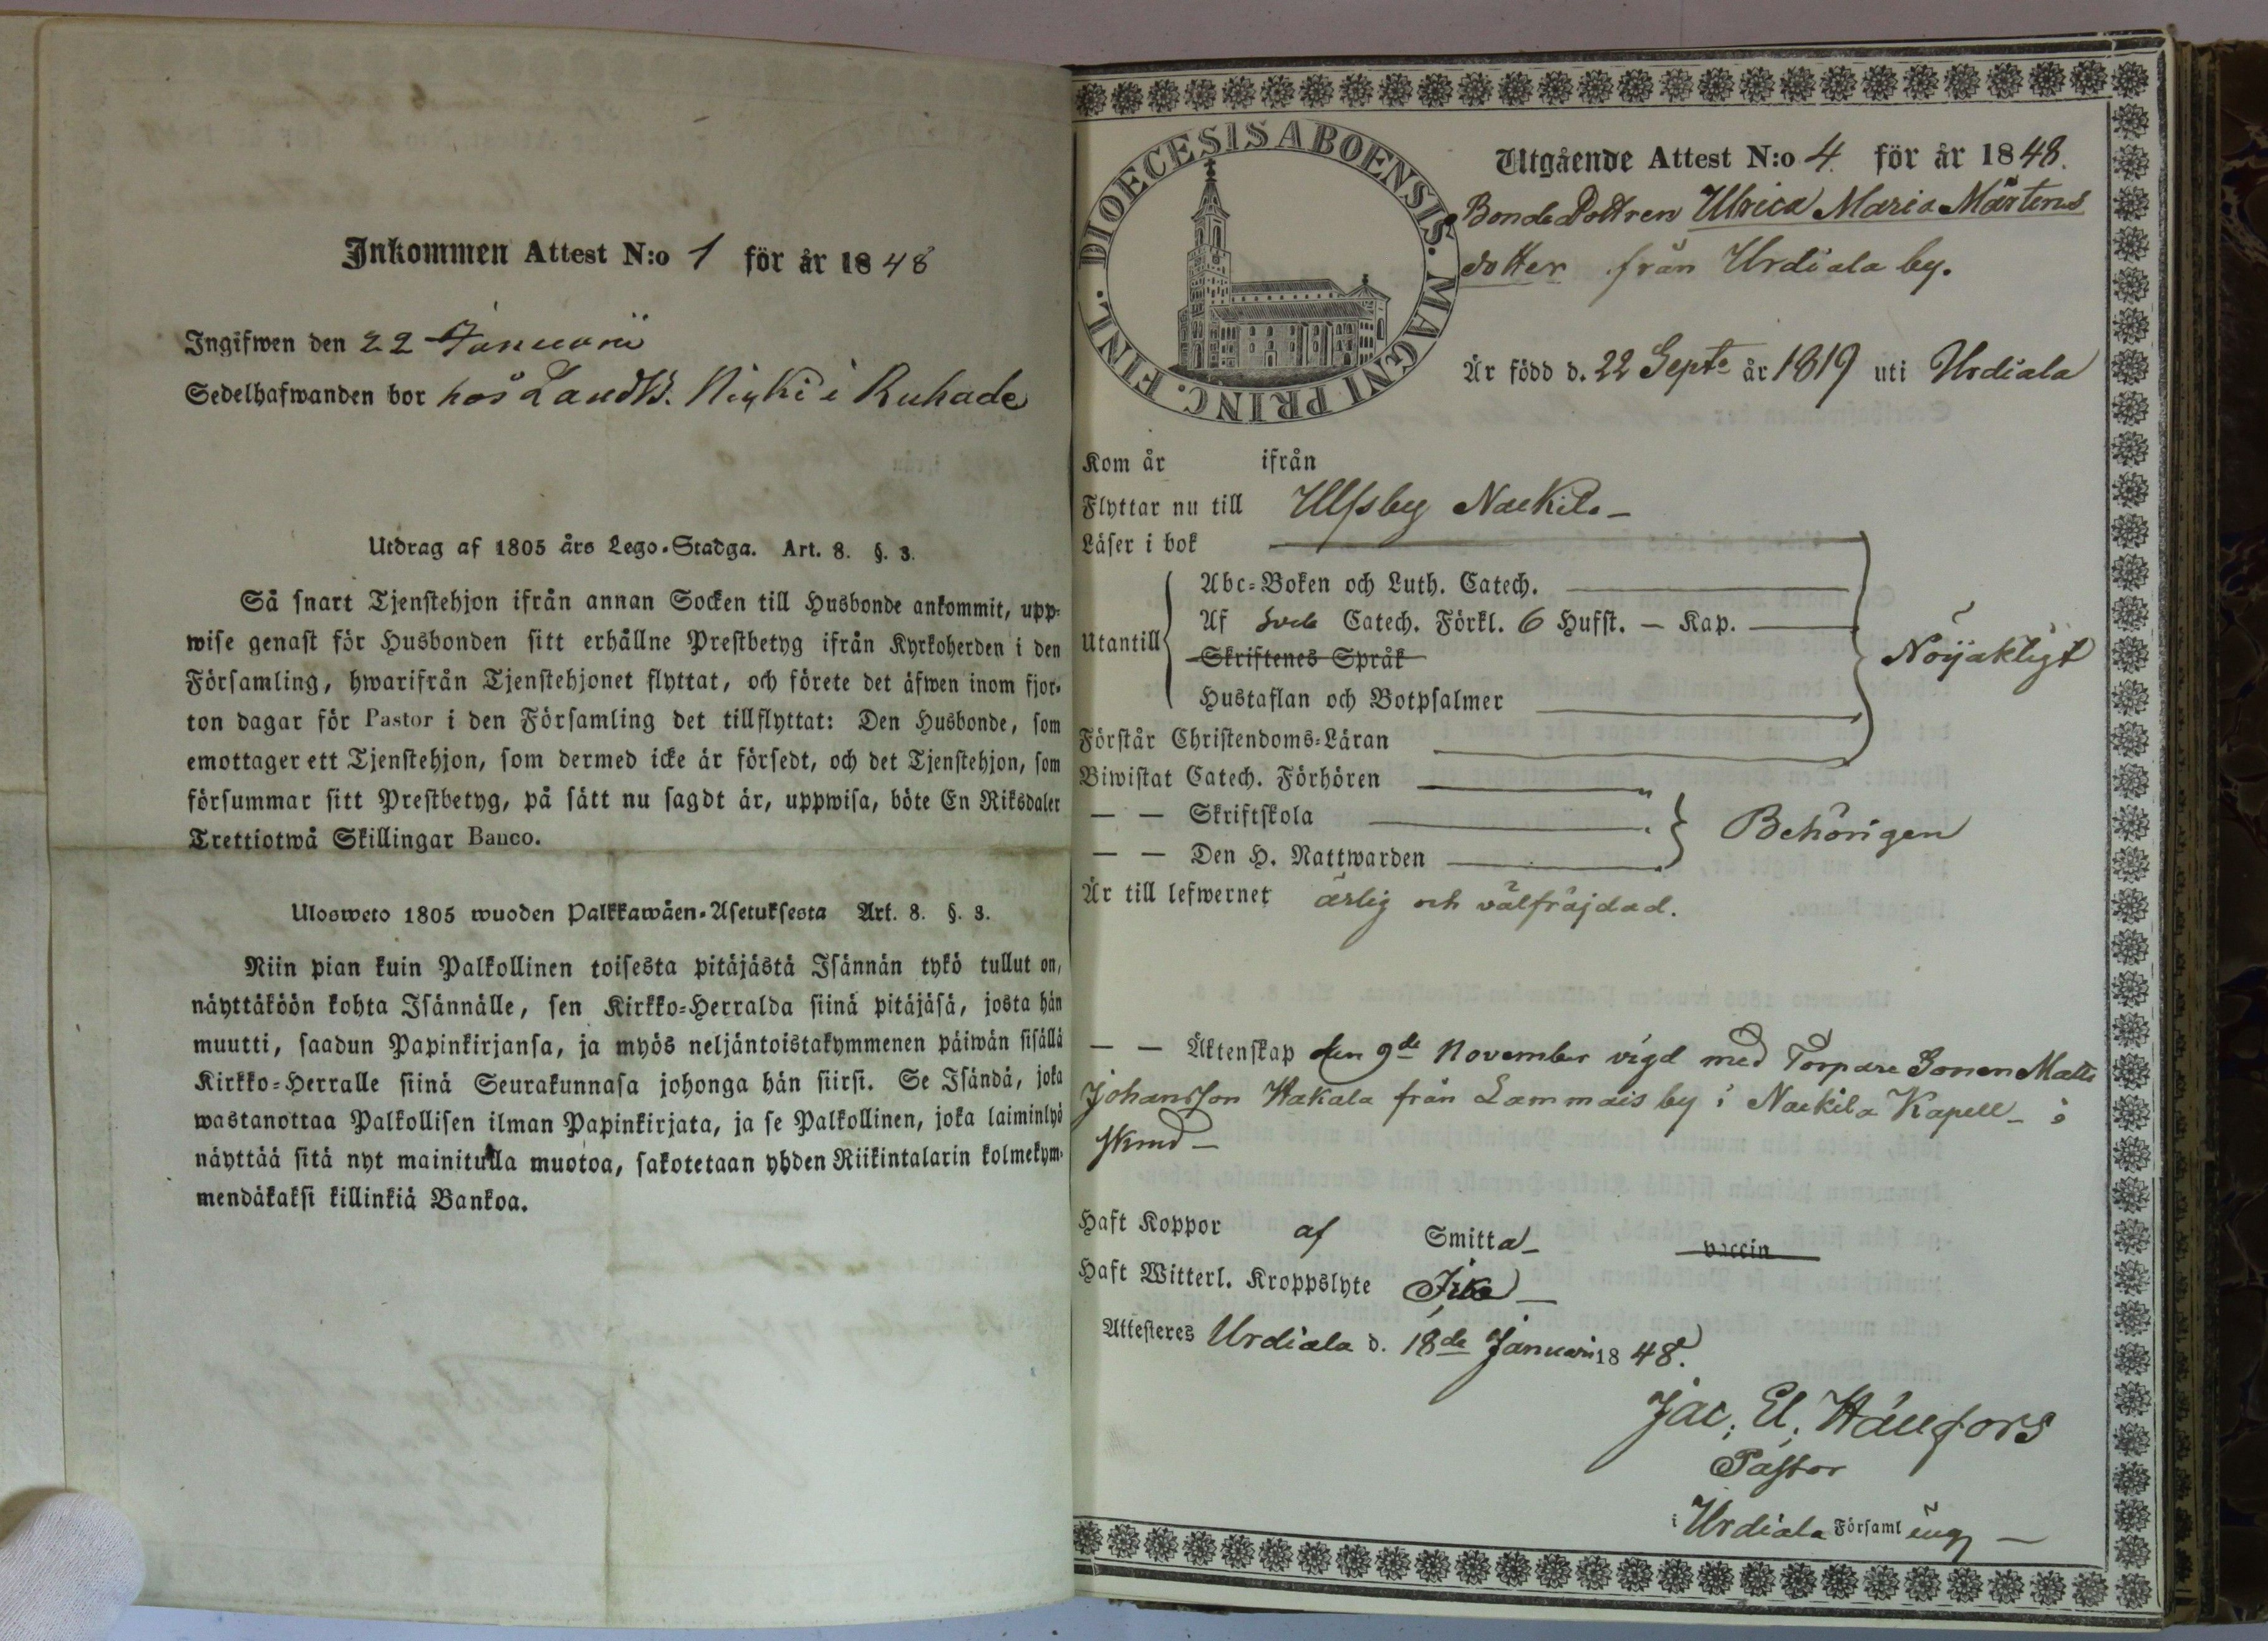 Inkommen Attest N:o 1 för år 1848
Ingifwen den 22 Januarii
Sedelhafwanden bor hos Landtb. i Ruhade
Utdrag af 1805 års Lego-Stadga. Art. 8. §. 3.
Så snart Tjenstehjon ifrån annan Socken till Husbonde ankommit, upp-
wise genast för Husbonden sitt erhållne Prestbetyg ifrån Kyrkoherden i den
Församling, hwarifrån Tjenstehjonet flyttat, och förete det äfwen inom fjor-
ton dagar för Pastor i den Församling det tillflyttat: Den Husbonde, som
emottager ett Tjenstehjon, som dermed icke är försedt, och det Tjenstehjon, som
försummar sitt Prestbetyg, på sätt nu sagdt är, uppwisa, böte En Riksdaler
Trettiotwå Skillingar Banco.
Ulosweto 1805 wuoden Palkkawäen-Asetuksesta Art. 8. §. 3.
Niin pian kuin Palkollinen toisesta pitäjästä Isännän tykö tullut on,
näyttäköön kohta Isännälle, sen Kirkko-Herralda siinä pitäjäsä, josta hän
muutti, saadun Papinkirjansa, ja myös neljäntoistakymmenen päiwän sisällä
Kirkko-Herralle siinä Seurakunnasa johonga hän siirsi. Se Isändä, joka
wastanottaa Palkollisen ilman Papinkirjata, ja se Palkollinen, joka laiminlyö
näyttää sitä nyt mainitulla muotoa, sakotetaan yhden Riikintalarin kolmekym-
mendäkaksi killinkiä Bankoa.
DIOECESIS ABOENSIS. MAGNI PRINC. FINL.
Utgående Attest N:o 4. för år 1848.
Bonde Dottren Ulrica Maria Mårtens
dotter från Urdiala by.
Är född d. 22 Septe år 1819 uti Urdiala
Kom år ifrån
Flyttar nu till Ulfsby Nackila -
Läser i bok
Utantill
Abc-Boken och Luth. Catech.
Af Sveb Catech. Förkl. 6 Hufst. - Kap.
Skriftenes Språk
Hustaflan och Botpsalmer
Nöijaktigt
Förstår Christendoms-Läran
Biwistat Catech. Förhören "
— — Skriftskola
— — Den H. Nattwarden
Behörigen
Är till lefwernet ärlig och välfräjdad.
— — Äktenskap den 9de November vigd med Torpare Sonen Matts
Johansson Hakala från Lammais by i Nackila Kapell - i
Haft Koppor af Smitta - vaccin
Haft Witterl. Kroppslyte Icke -
Attesteres Urdiala d. 18de Januari 1848.
Jac. El. Hällfors
Pastor
i Urdiala Församling -